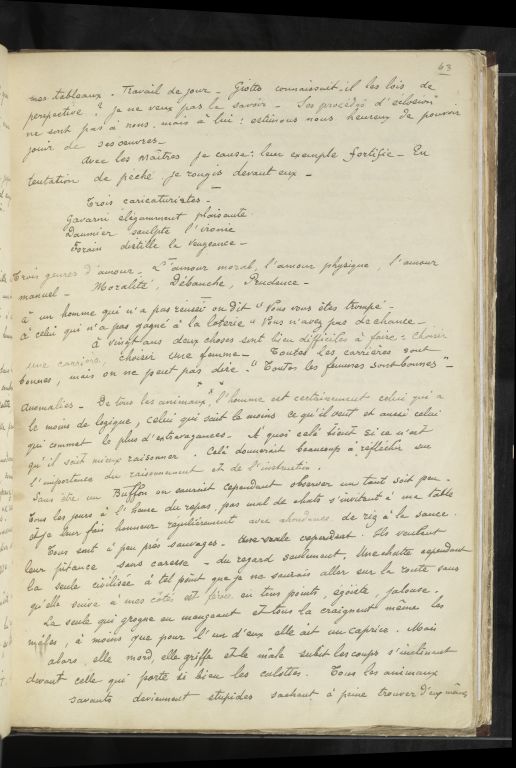 63
mes tableaux. Travail de jour - Giotto connaissait-il les lois de
perspective ? je ne veux pas le savoir - Ses procédés d'
ne sont pas à nous, mais à lui : estimons nous heureux de pouvoir
jouir de ses œuvres -
Avec les Maîtres je cause : leur exemple fortifie - En
tentation de péché je rougis devant eux -
Trois caricaturistes -
Gavarni élégamment plaisante
Daumier sculpte l'ironie
Forain distille la vengeance -
Trois genres d'amour - L'amour moral, l'amour physique, l'amour
manuel - Moralité, Débauche, Prudence -
à un homme qui n'a pas reussi on dit "Vous vous êtes trompé -
à celui qui n'a pas gagné à la loterie "Vous n'avez pas de chance -
à vingt ans deux choses sont bien difficiles à faire : choisir
une carrière, choisir une femme - Toutes les carrières sont
bonnes, mais on ne peut pas dire "Toutes les femmes sont bonnes" -
Anomalies - De tous les animaux, l'homme est certainement celui qui a
le moins de logique, celui qui sait le moins ce qu'il veut et aussi celui
qui commet le plus d'extravagances - A quoi celà tient si ce n'est
qu'il sait mieux raisonner. Celà donnerait beaucoup à réfléchir sur
l'importance du raisonnement et de l'instruction.
Sans être un Buffon on saurait cependant observer un tant soit peu -
Tous les jours à l'heure du repas, pas mal de chats s'invitent à ma table
et je leur fais honneur régulièrement avec abondance de riz à la sauce.
Tous sont à peu près sauvages - Une seule cependant. Ils veulent
leur pitance sans caresse - du regard seulement, Une chatte cependant
la seule civilisée à tel point que je ne saurais aller sur la route sans
qu'elle suive à mes côtés est en tous points, egoïste, jalouse.
La seule qui grogne en mangeant et tous la craignent même les
mâles, à moins que pour l'un d'eux elle ait un caprice. Mais
alors, elle mord, elle griffe et le mâle subit les coups s'inclinant
devant celle qui porte si bien les culottes. Tous les animaux
savants deviennent stupides sachant à peine trouver d'eux mêmes